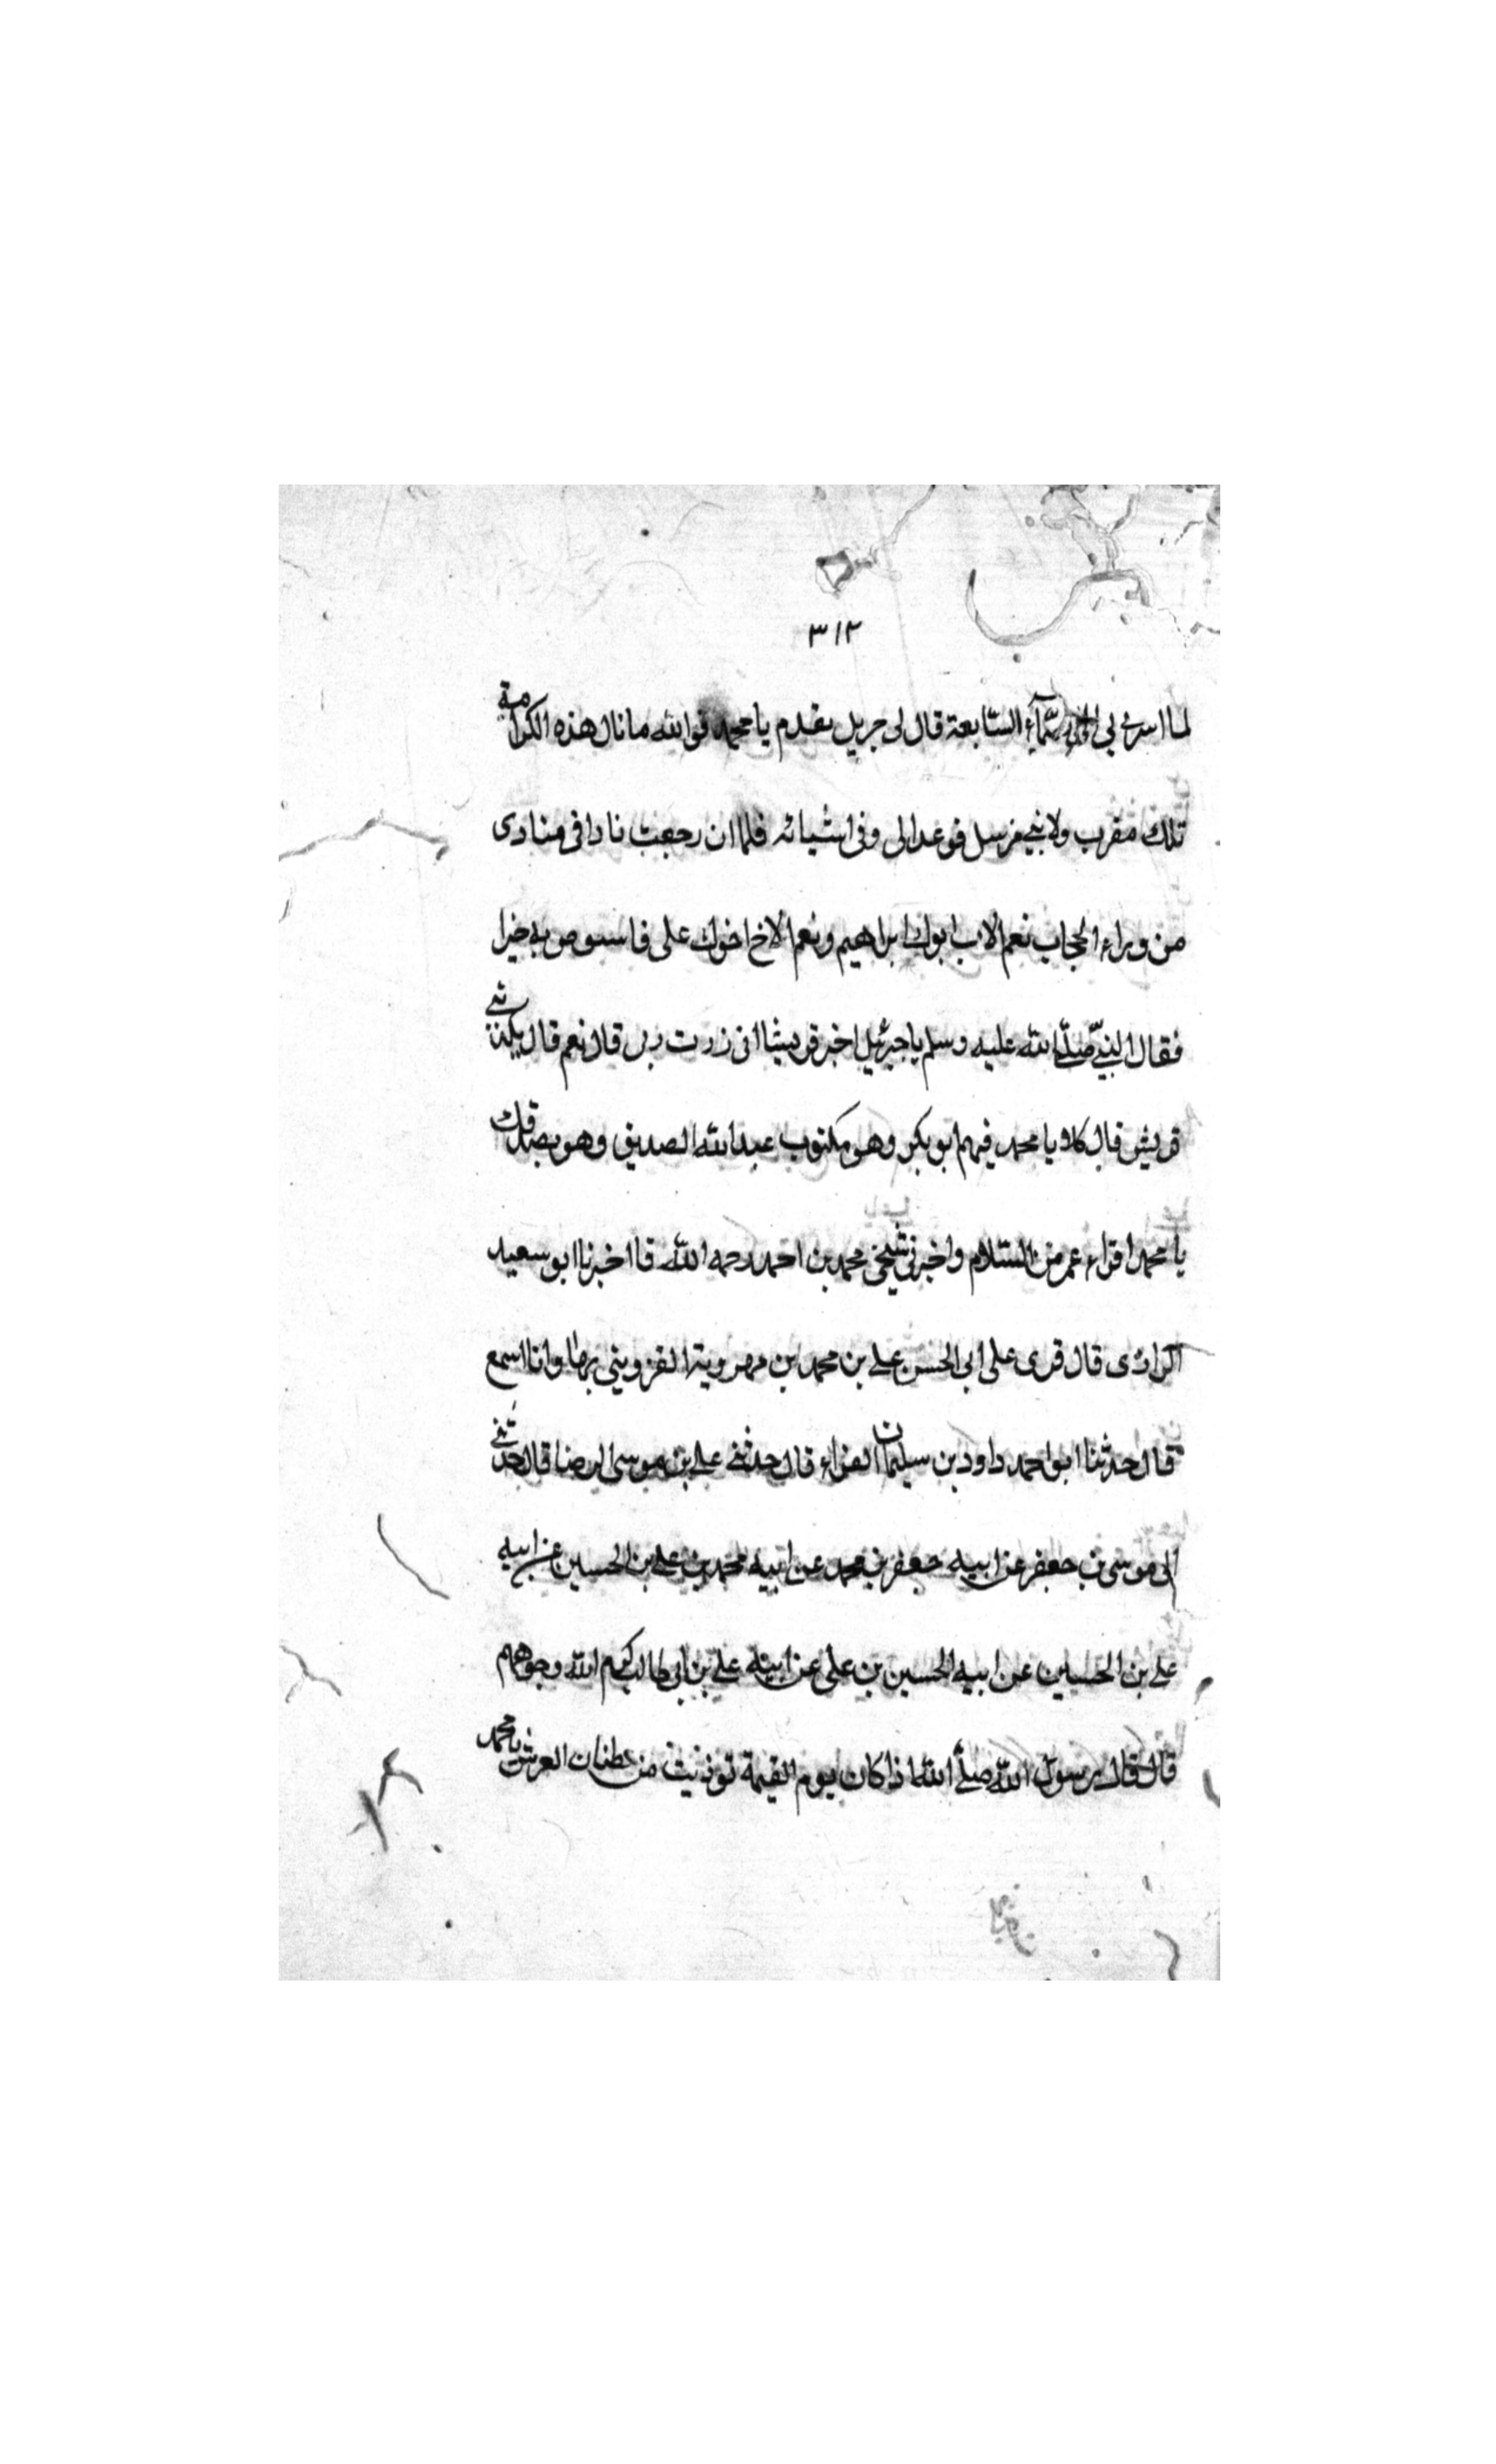 ٣١٢
لما اسرى بي الى السمآء السابعة قال لى جريل تقدم يا محمد فوالله ما نال هذه الكرامة
تلك مقرب ولا نبي مرسل فوعد الى وفى اشيائه فلما ان رجعت نادانى منادى
من وراء الحجاب نعم الاب ابوك ابراهيم ونعم الاخ اخوك على فاستوص به خيرا
فقال النبيّ صلّى الله عليه وسلم يا جبرئيل اخبر قريشا انى زرت ربى قال نعم قال يكذبنى
قريش قال كلا يا محمد فيهم ابو بكر وهو مكتوب عبد الله الصديق وهو يصدقك
يا محمد اقراء عمر من السلام واخبرنى شيخى محمد بن احمد رحمه الله قا اخبرنا ابو سعيد
الرازى قال قرى على ابى الحسن على بن محمد بن مهروية القزوينى بها وانا اسمع
قال حدثنا ابو احمد داود بن سليمان الفراء قال حدثنى على بن موسى الرضا قال حدثنى
ابى موسى بن جعفر عن ابيه جعفر بن محمد عن ابيه محمد بن على بن الحسين عن ابيه
على بن الحسين عن ابيه الحسين بن على عن ابيه على بن ابى طالب كرم الله وجوههم
قال قال رسول الله صلّى الله اذا كان يوم القيمة نوديت من بطنان العرش يا محمد